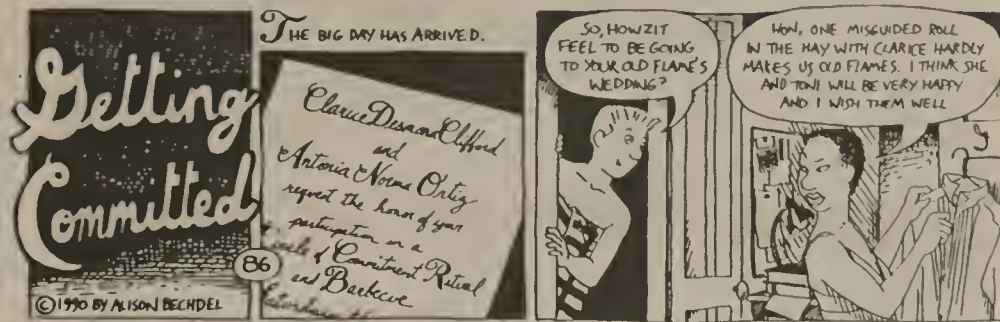 Getting
Committed
86
© 1990 BY ALISON BECHDEL
THE BIG DAY HAS ARRIVED.
Clarice Desmond Clifford
and
Antonia Norma Ortiz
request the honor of your
participation in a
Circle of Commitment Ritual
and Barbecue
SO, HOWZIT
FEEL TO BE GOING
TO YOUR OLD FLAME'S
WEDDING?
HON, ONE MISGUIDED ROLL
IN THE HAY WITH CLARICE HARDLY
MAKES US OLD FLAMES. I THINK SHE
AND TONI WILL BE VERY HAPPY
AND I WISH THEM WELL